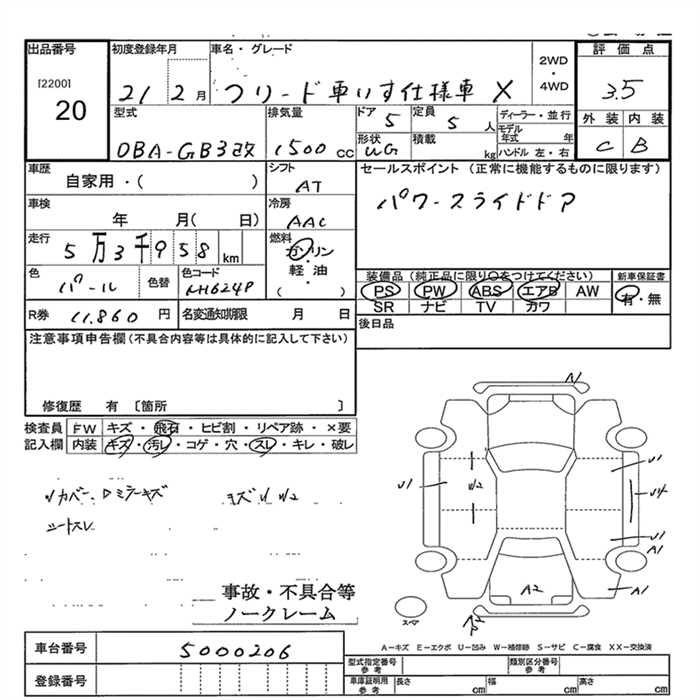 出品番号 初度登録年月 車名・グレード 2WD・4WD 評価点
[2200] 20
21 2月 フリード車いす仕様車 X 3.5
型式 排気量 ドア 5 定員 5人 ディーラー・並行 外装 内装
DBA-GB3改 1500cc 形状 UG 積載 kg モデル年式 年 C B
ハンドル 左・右
車歴 シフト セールスポイント (正常に機能するものに限ります)
自家用・( ) AT
パワースライドドア
車検 冷房
年 月( 日) AAC
走行 燃料
5万3千958km ガソリン・軽油 ( ・ )
色 色替 色コード 装備品 (純正品に限り○をつけてください) 新車保証書
パール NH624P PS PW ABS エアB AW 有・無
SR ナビ TV カワ
R券 11.860円 名変通知期限 月 日 後日品
注意事項申告欄(不具合内容等は具体的に記入して下さい)
修復歴 有 〔箇所 〕
検査員記入欄 FW キズ・飛石・ヒビ割・リペア跡・×要
内装 キズ・汚レ・コゲ・穴・スレ・キレ・破レ
シートスレ
A1
U1 W2 U1
U4
U1
A1
A2 A1
スペア
事故・不具合等
ノークレーム
A−キズ E−エクボ U−凹み W−補修跡 S−サビ C−腐食 XX−交換済
車台番号 5000206
登録番号
型式指定番号 参考 類別区分番号 参考
車庫証明用 参考 長さ cm 幅 cm 高さ cm